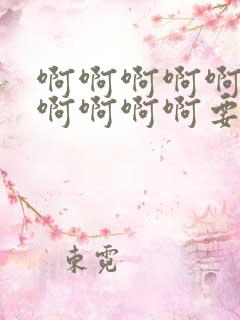 啊啊啊啊啊
啊啊啊啊要
束霓